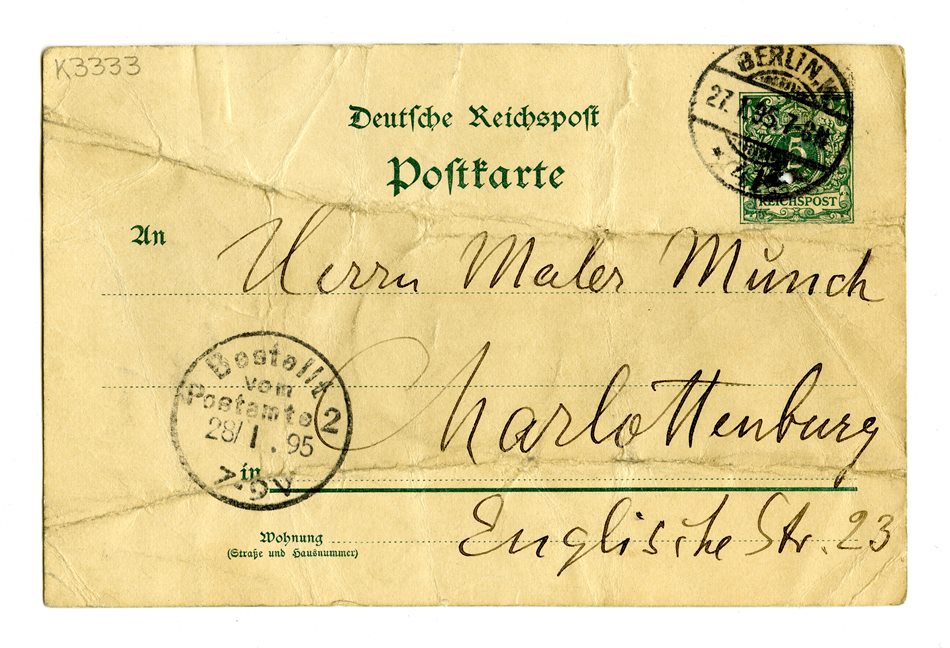 K3333
BERLIN, W.
27. 1. 95. 7-8 N.
5
REICHSPOST
Deutsche Reichspost
Postkarte
An
Herrn Maler Munch
Charlottenburg
Bestellt
vom
Postamte 2
28/1. 95
7-9 V
in
Englische Str. 23
Wohnung
(Straße und Hausnummer)